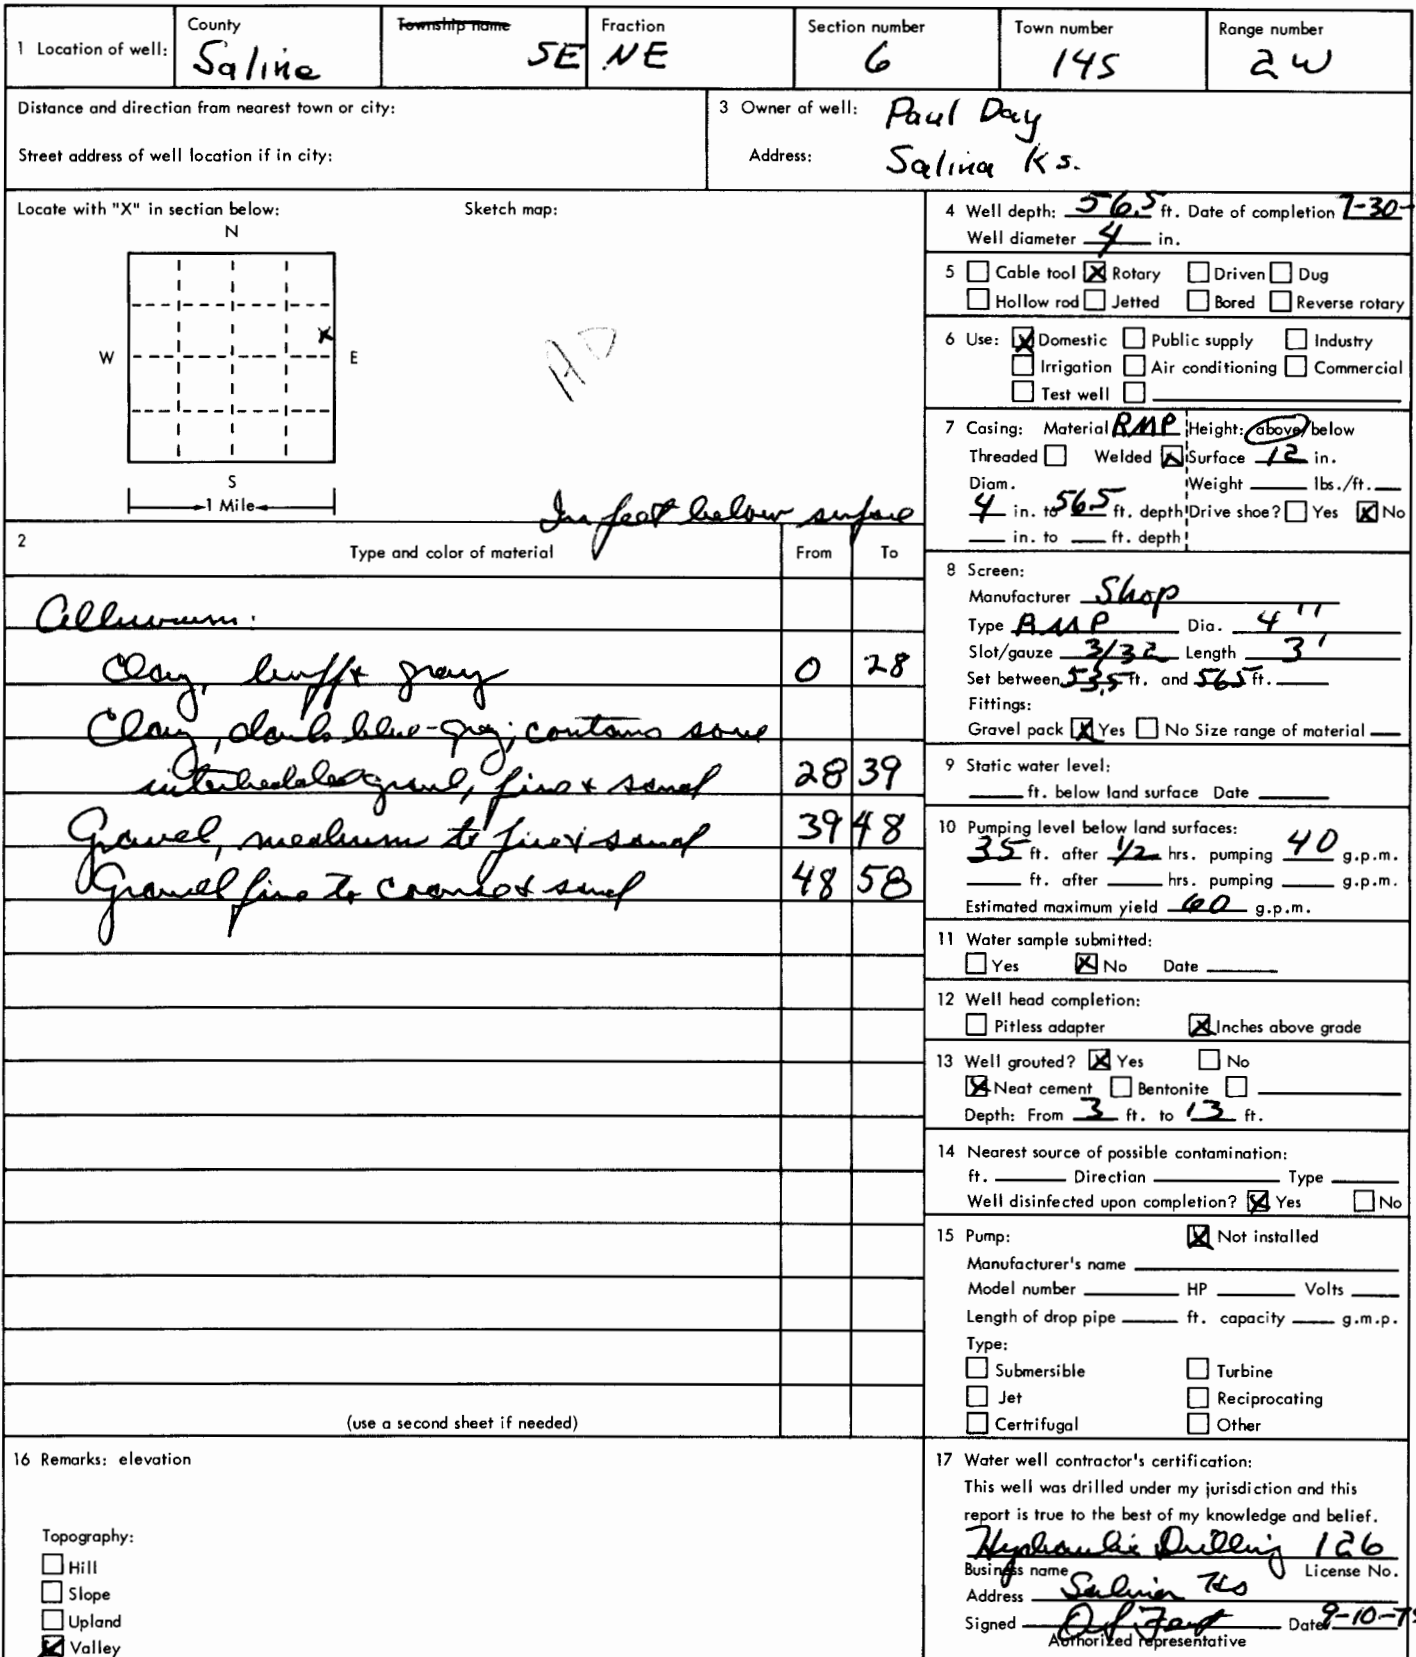 1 Location of well: County Saline Township name SE Fraction NE Section number 6 Town number 14S Range number 2W
Distance and direction from nearest town or city:
Street address of well location if in city:
3 Owner of well: Paul Day
Address: Salina Ks.
Locate with "X" in section below: Sketch map:
N
X
W E
S
1 Mile
In feet below surface
2 Type and color of material From To
Alluvium:
Clay, buff & gray 0 28
Clay, dark blue-gray; contains some
interbedded gravel, fine & sand 28 39
Gravel, medium to fine & sand 39 48
Gravel fine to coarse & sand 48 58
(use a second sheet if needed)
16 Remarks: elevation
Topography:
Hill
Slope
Upland
X Valley
4 Well depth: 56.5 ft. Date of completion 7-30-
Well diameter 4 in.
5 Cable tool X Rotary Driven Dug
Hollow rod Jetted Bored Reverse rotary
6 Use: X Domestic Public supply Industry
Irrigation Air conditioning Commercial
Test well
7 Casing: Material RMP Height: above/below
Threaded Welded X Surface 12 in.
Diam. Weight lbs./ft.
4 in. to 56.5 ft. depth Drive shoe? Yes X No
in. to ft. depth
8 Screen:
Manufacturer Shop
Type RMP Dia. 4"
Slot/gauze 3/32 Length 3'
Set between 53.5 ft. and 56.5 ft.
Fittings:
Gravel pack X Yes No Size range of material
9 Static water level:
ft. below land surface Date
10 Pumping level below land surfaces:
35 ft. after 1/2 hrs. pumping 40 g.p.m.
ft. after hrs. pumping g.p.m.
Estimated maximum yield 60 g.p.m.
11 Water sample submitted:
Yes X No Date
12 Well head completion:
Pitless adapter X Inches above grade
13 Well grouted? X Yes No
X Neat cement Bentonite
Depth: From 3 ft. to 13 ft.
14 Nearest source of possible contamination:
ft. Direction Type
Well disinfected upon completion? X Yes No
15 Pump: X Not installed
Manufacturer's name
Model number HP Volts
Length of drop pipe ft. capacity g.m.p.
Type:
Submersible Turbine
Jet Reciprocating
Certrifugal Other
17 Water well contractor's certification:
This well was drilled under my jurisdiction and this
report is true to the best of my knowledge and belief.
Hydraulic Drilling 126
Business name License No.
Address Salina Ks
Signed Date 9-10-
Authorized representative